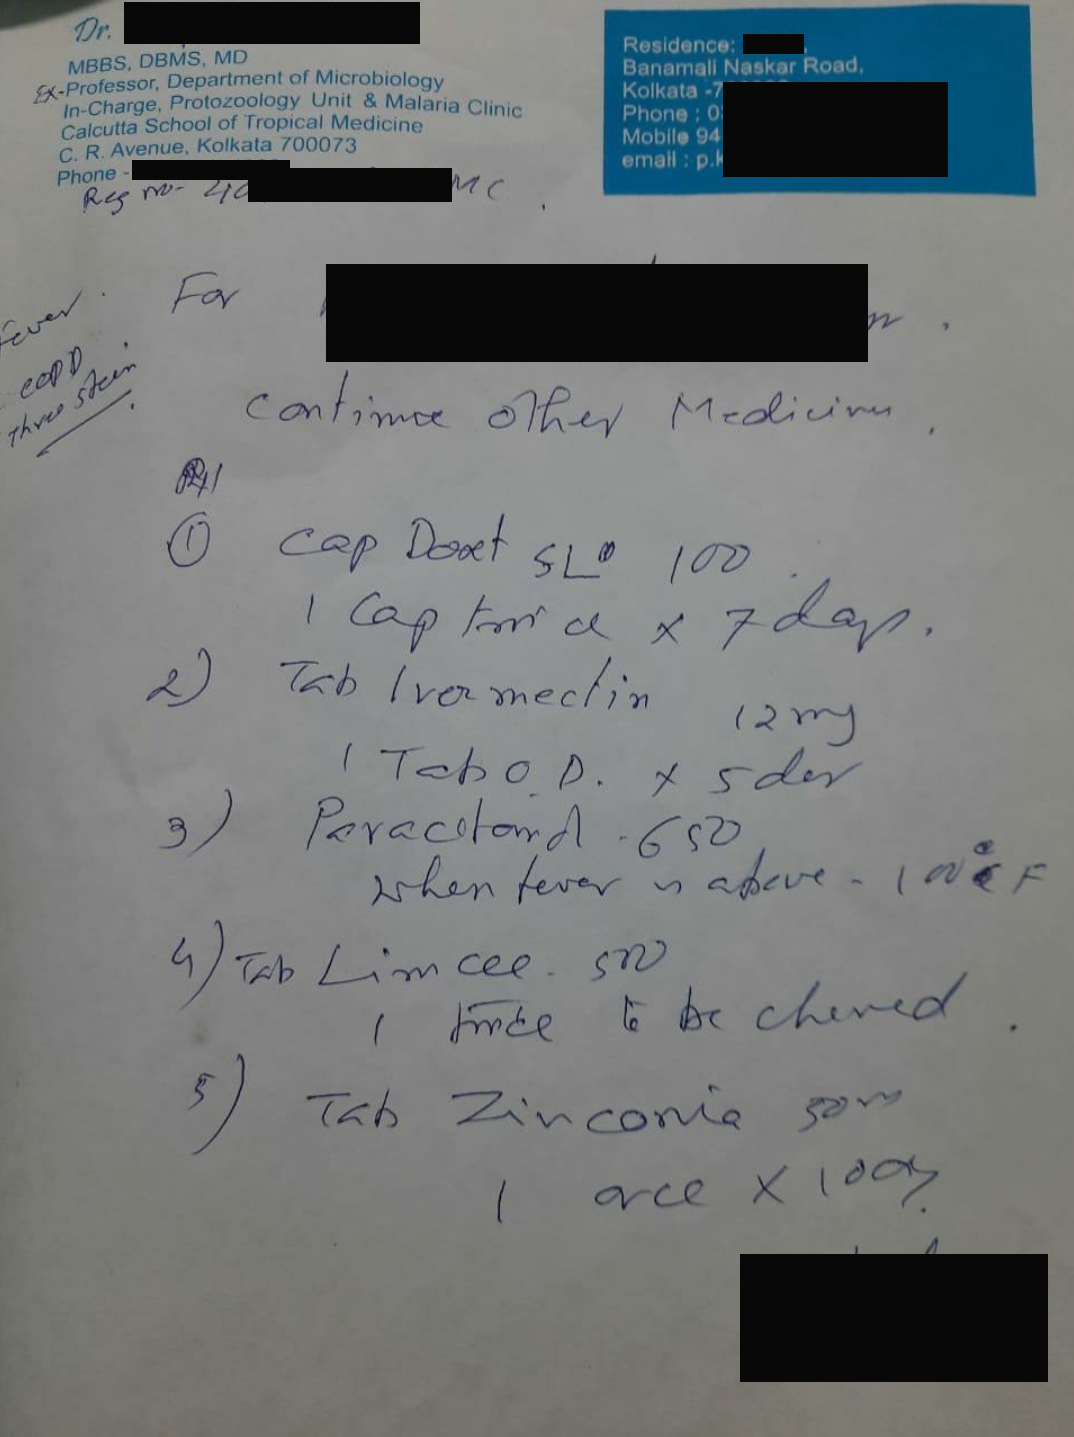 Dr.
MBBS, DBMS, MD
Ex-Professor, Department of Microbiology
In-Charge, Protozoology Unit & Malaria Clinic
Calcutta School of Tropical Medicine
C. R. Avenue, Kolkata 700073
Phone -
Reg no- 40 MC
Residence:
Banamali Naskar Road,
Kolkata -7
Phone : 0
Mobile 94
email : p.k
Fever.
COPD
Three stein
For
Continue Other Medicines.
①
Cap Doxt SL 100
1 Cap twice x 7 days.
2) Tab Ivermectin 12 mg
1 Tab O.D. x 5 day
3) Paracetamol - 650
when fever is above - 100° F
4) Tab Limcee. 500
1 twice to be chewed.
5) Tab Zinconia 50 m
1 once x 10 day.